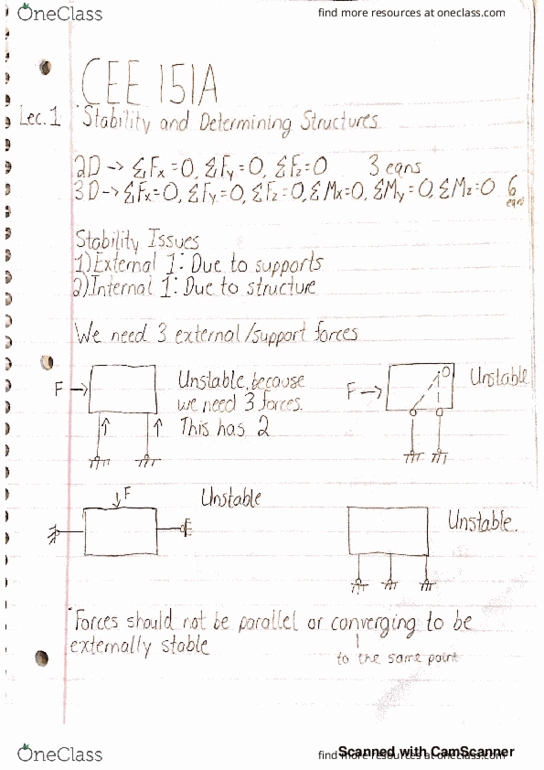 OneClass
find more resources at oneclass.com
CEE 151A
Lec. 1 Stability and Determining Structures
2D -> ΣFx=0, ΣFy=0, ΣFz=0 3 eqns
3D -> ΣFx=0, ΣFy=0, ΣFz=0, ΣMx=0, ΣMy=0, ΣMz=0 6 eqns
Stability Issues
1) External I: Due to supports
2) Internal I: Due to structure
We need 3 external/support forces
F Unstable, because
we need 3 forces.
This has 2
F O Unstable
F Unstable
Unstable.
Forces should not be parallel or converging to be
externally stable
to the same point
OneClass
find more resources at oneclass.com
Scanned with CamScanner